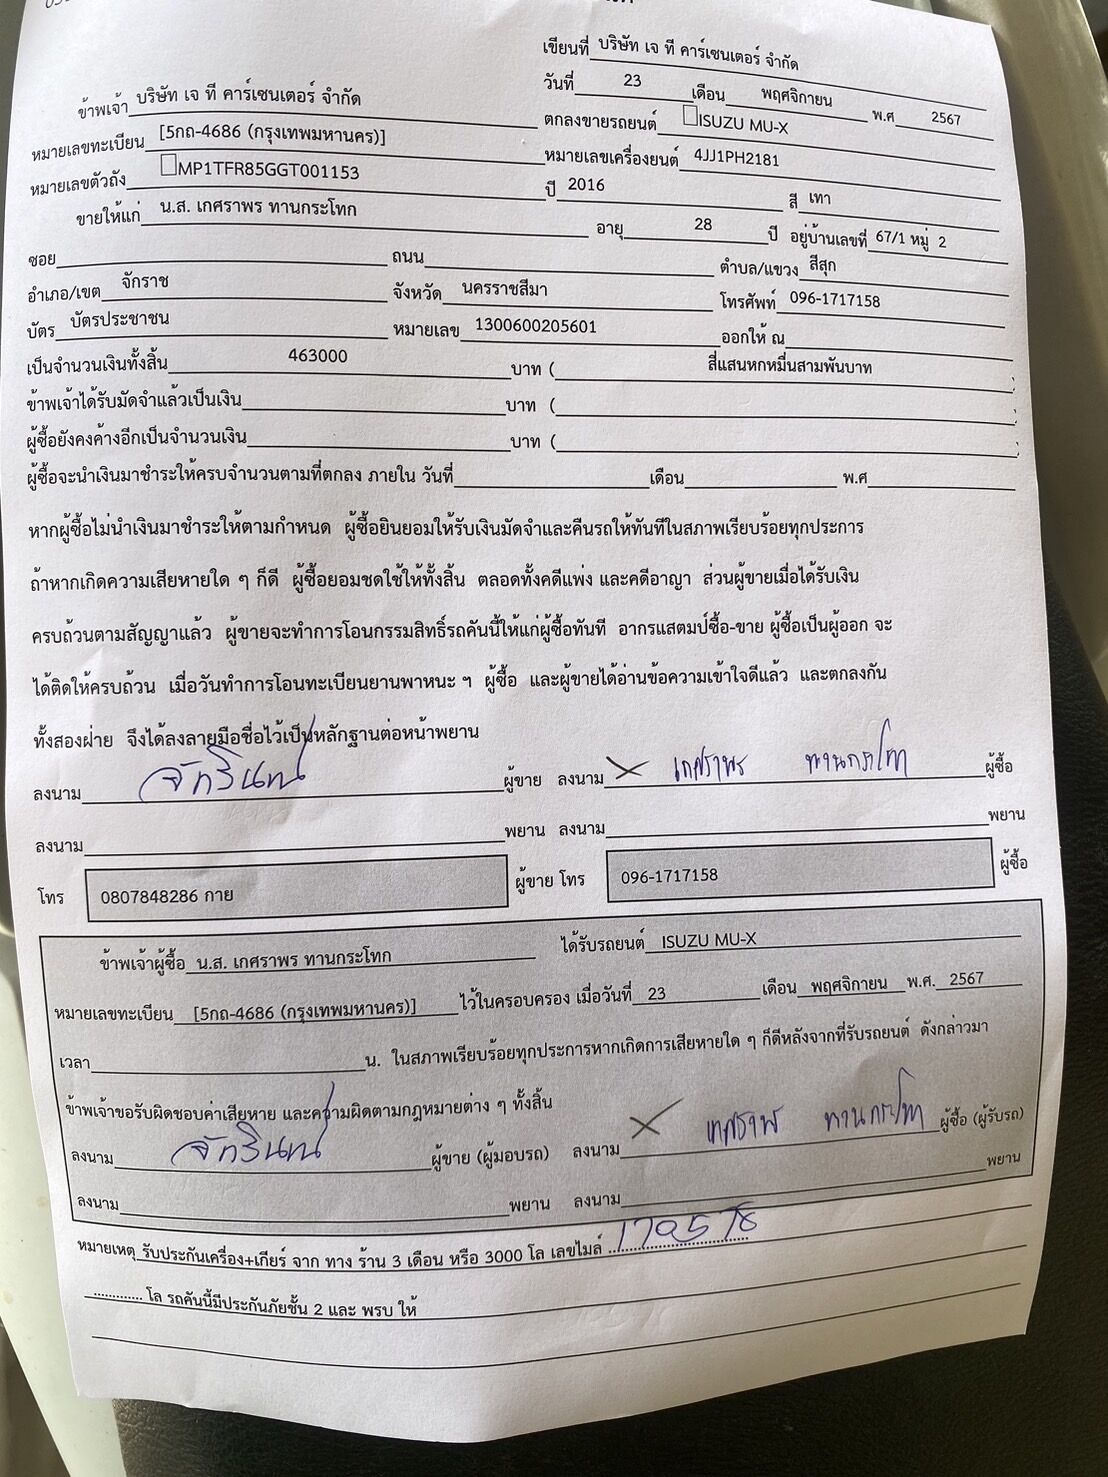 เขียนที่ บริษัท เจ ที คาร์เซนเตอร์ จำกัด
วันที่ 23 เดือน พฤศจิกายน พ.ศ 2567
ข้าพเจ้า บริษัท เจ ที คาร์เซนเตอร์ จำกัด ตกลงขายรถยนต์ ISUZU MU-X
หมายเลขทะเบียน [5กถ-4686 (กรุงเทพมหานคร)] หมายเลขเครื่องยนต์ 4JJ1PH2181
หมายเลขตัวถัง MP1TFR85GGT001153 ปี 2016 สี เทา
ขายให้แก่ น.ส. เกศราพร ทานกระโทก อายุ 28 ปี อยู่บ้านเลขที่ 67/1 หมู่ 2
ซอย ถนน ตำบล/แขวง สีสุก
อำเภอ/เขต จักราช จังหวัด นครราชสีมา โทรศัพท์ 096-1717158
บัตร บัตรประชาชน หมายเลข 1300600205601 ออกให้ ณ
เป็นจำนวนเงินทั้งสิ้น 463000 บาท ( สี่แสนหกหมื่นสามพันบาท )
ข้าพเจ้าได้รับมัดจำแล้วเป็นเงิน บาท ( )
ผู้ซื้อยังคงค้างอีกเป็นจำนวนเงิน บาท ( )
ผู้ซื้อจะนำเงินมาชำระให้ครบจำนวนตามที่ตกลง ภายใน วันที่ เดือน พ.ศ
หากผู้ซื้อไม่นำเงินมาชำระให้ตามกำหนด ผู้ซื้อยินยอมให้รับเงินมัดจำและคืนรถให้ทันทีในสภาพเรียบร้อยทุกประการ
ถ้าหากเกิดความเสียหายใด ๆ ก็ดี ผู้ซื้อยอมชดใช้ให้ทั้งสิ้น ตลอดทั้งคดีแพ่ง และคดีอาญา ส่วนผู้ขายเมื่อได้รับเงิน
ครบถ้วนตามสัญญาแล้ว ผู้ขายจะทำการโอนกรรมสิทธิ์รถคันนี้ให้แก่ผู้ซื้อทันที อากรแสตมป์ซื้อ-ขาย ผู้ซื้อเป็นผู้ออก จะ
ได้ติดให้ครบถ้วน เมื่อวันทำการโอนทะเบียนยานพาหนะ ฯ ผู้ซื้อ และผู้ขายได้อ่านข้อความเข้าใจดีแล้ว และตกลงกัน
ทั้งสองฝ่าย จึงได้ลงลายมือชื่อไว้เป็นหลักฐานต่อหน้าพยาน
ลงนาม จักรินทน์ ผู้ขาย ลงนาม เกศราพร ทานกระโทก ผู้ซื้อ
ลงนาม พยาน ลงนาม พยาน
โทร 0807848286 กาย ผู้ขาย โทร 096-1717158 ผู้ซื้อ
ข้าพเจ้าผู้ซื้อ น.ส. เกศราพร ทานกระโทก ได้รับรถยนต์ ISUZU MU-X
หมายเลขทะเบียน [5กถ-4686 (กรุงเทพมหานคร)] ไว้ในครอบครอง เมื่อวันที่ 23 เดือน พฤศจิกายน พ.ศ. 2567
เวลา น. ในสภาพเรียบร้อยทุกประการหากเกิดการเสียหายใด ๆ ก็ดีหลังจากที่รับรถยนต์ ดังกล่าวมา
ข้าพเจ้าขอรับผิดชอบค่าเสียหาย และความผิดตามกฎหมายต่าง ๆ ทั้งสิ้น
ลงนาม จักรินทน์ ผู้ขาย (ผู้มอบรถ) ลงนาม เกศราพร ทานกระโทก ผู้ซื้อ (ผู้รับรถ)
ลงนาม พยาน ลงนาม พยาน
หมายเหตุ รับประกันเครื่อง+เกียร์ จาก ทาง ร้าน 3 เดือน หรือ 3000 โล เลขไมล์ 170578
............ โล รถคันนี้มีประกันภัยชั้น 2 และ พรบ ให้